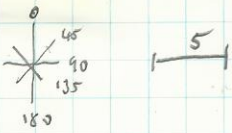 0
45
5
90
135
180